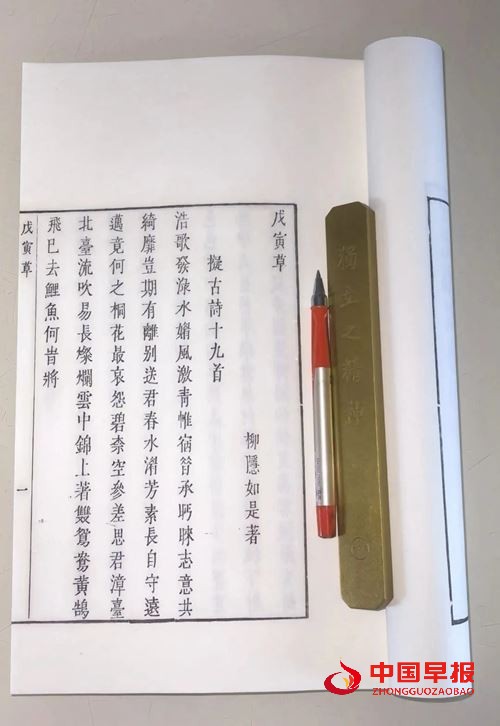 戊寅草
柳隱如是著
擬古詩十九首
浩歌發淥水媠風激青惟宿昔承眄睞志意共
綺靡豈期有離别送君春水湄芳素長自守遠
邁竟何之桐花最哀怨碧柰空參差思君漳臺
北臺流吹易長燦爛雲中錦上著雙鴛鴦黄鵠
飛已去鯉魚何旹將
戊寅草
一
獨立之精神
中国早报
ZHONGGUOZAOBAO.COM